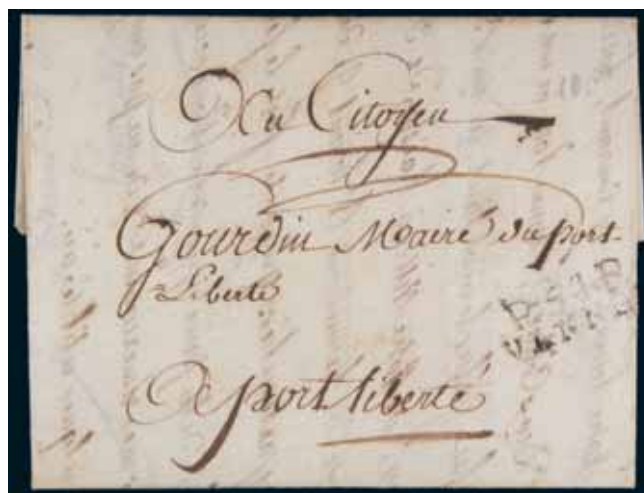 Au Citoyen
Gourdin Maire du port-
Liberté
a port liberté